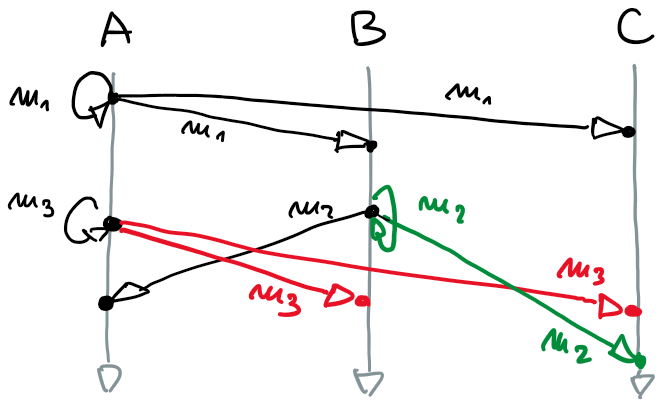 A B C
m₁
m₁
m₁
m₃
m₂
m₂
m₃
m₃
m₂